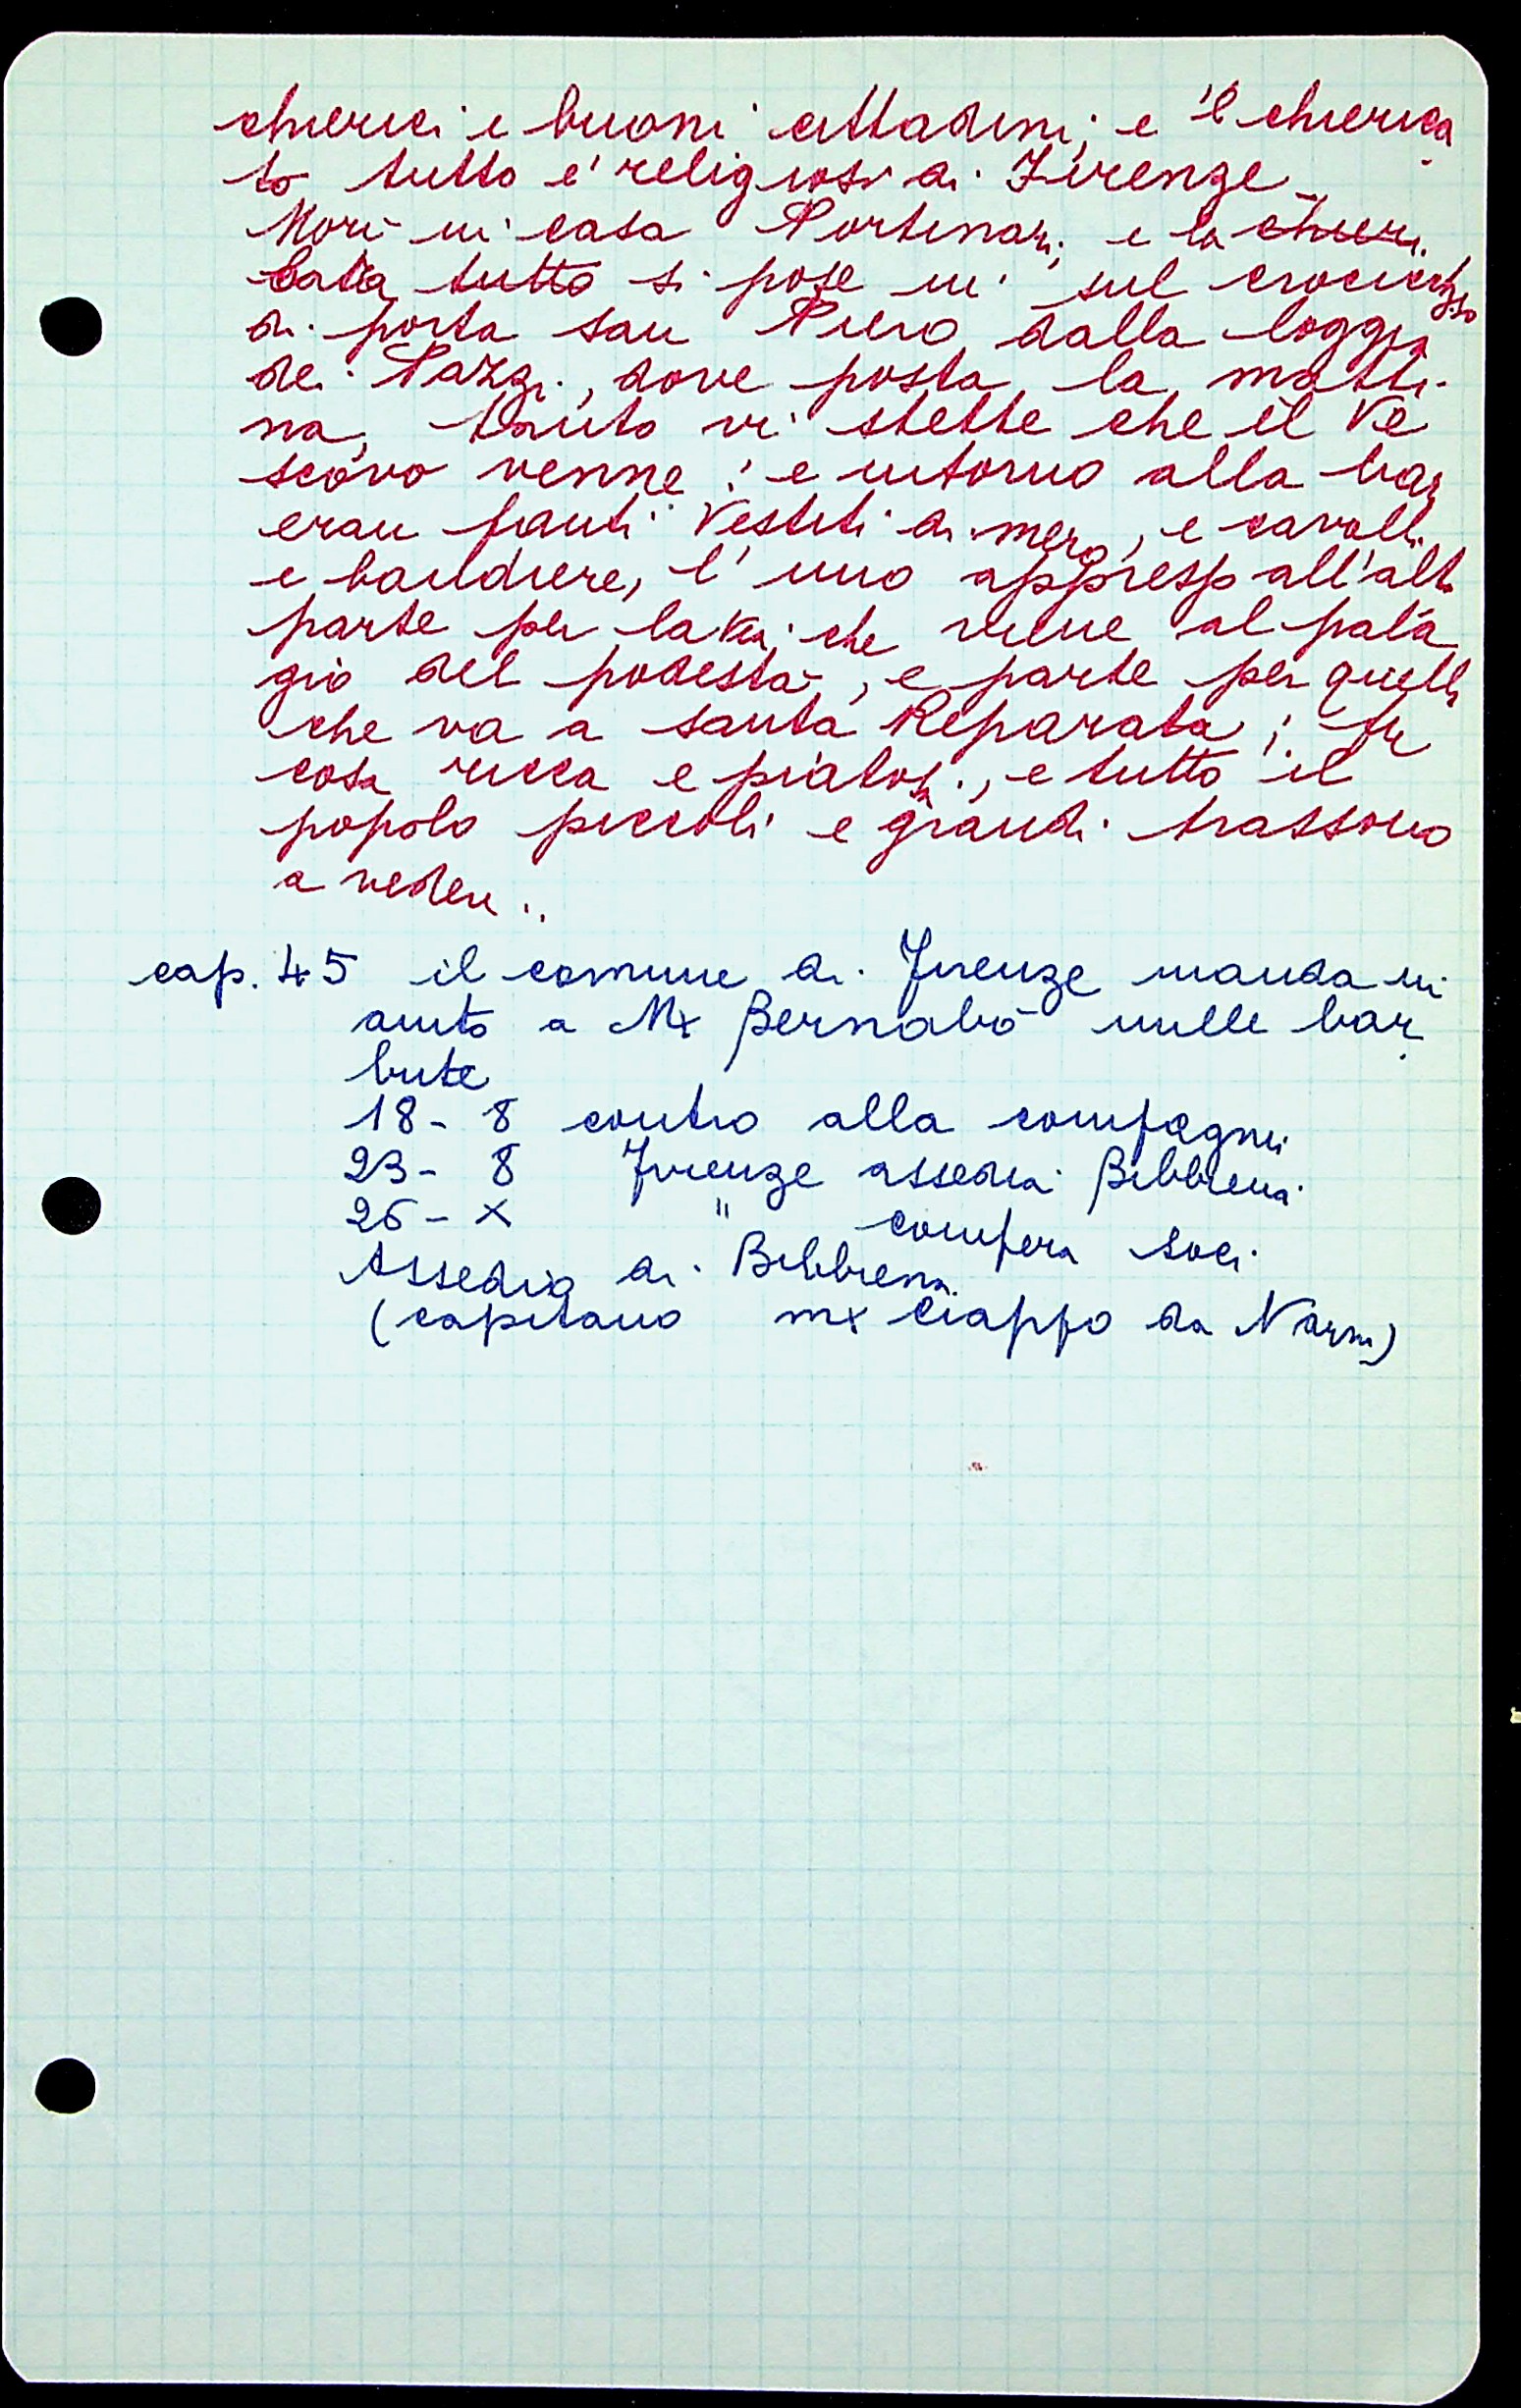 chierici e buoni cittadini; e 'l chierica
to tutto e' religiosi di Firenze_
Morì in casa Portinari; e la chieri
bara tutto si pose in sul crocicchio
di porta san Piero dalla loggia
de' Pazzi, dove posta la matti-
na, tanto vi stette che il Ve
scovo venne: e intorno alla bara
eran fanti vestiti di nero, e cavalli
e bandiere, l'uno appresso all'alt.
parte per la via che viene al pala
gio del podestà, e parte per quella
che va a santa Reparata; fu
cosa ricca e piatosa, e tutto il
popolo piccoli e grandi trassono
a vedere..
cap. 45 il comune di Firenze manda in
aiuto a Mx Bernabò mille bar
bute
18- 8 contro alla compagnia
23- 8 Firenze assedia Bibbiena
26- X " compera Soci
Assedio di Bibbiena
(capitano mx Ciappo da Narni)